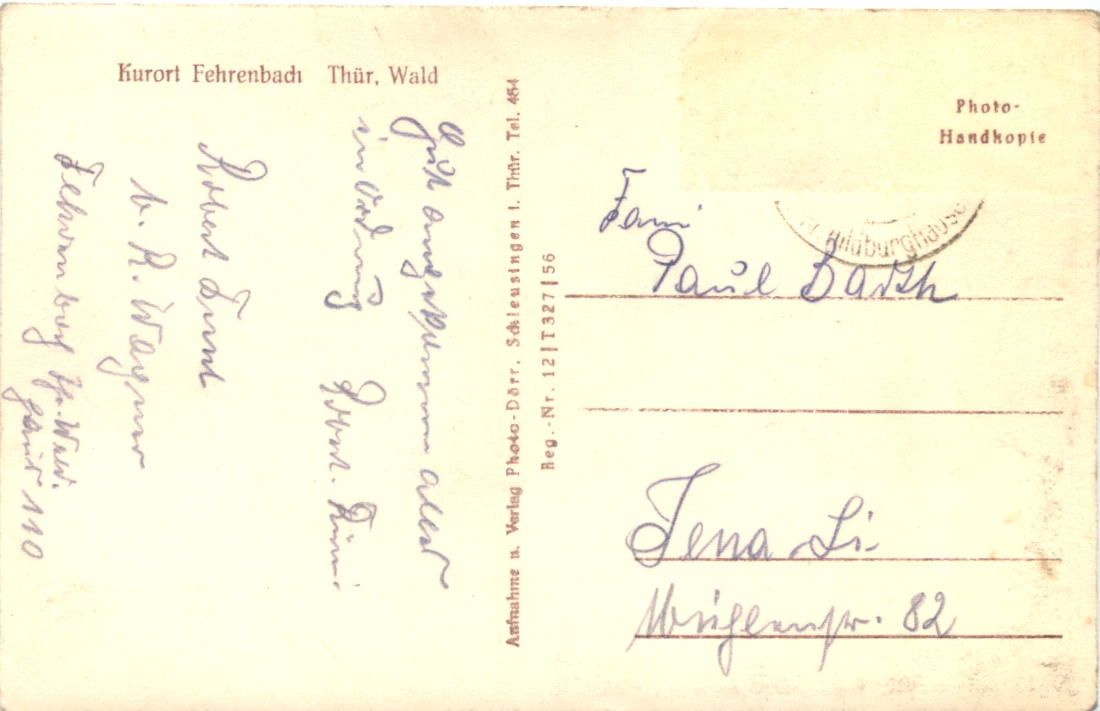 Kurort Fehrenbach Thür. Wald
Gut angekommen alles
in Ordnung Robert
Robert
b. R. Wagner
Fehrenbach Th. Wald.
Haus 110
Aufnahme u. Verlag Photo-Dörr, Schleusingen i. Thür. Tel. 454
Reg.-Nr. 12|T327|56
Photo-
Handkopie
Hildburghause
Fami
Paul Barth
Jena Li-
Mühlenstr. 82